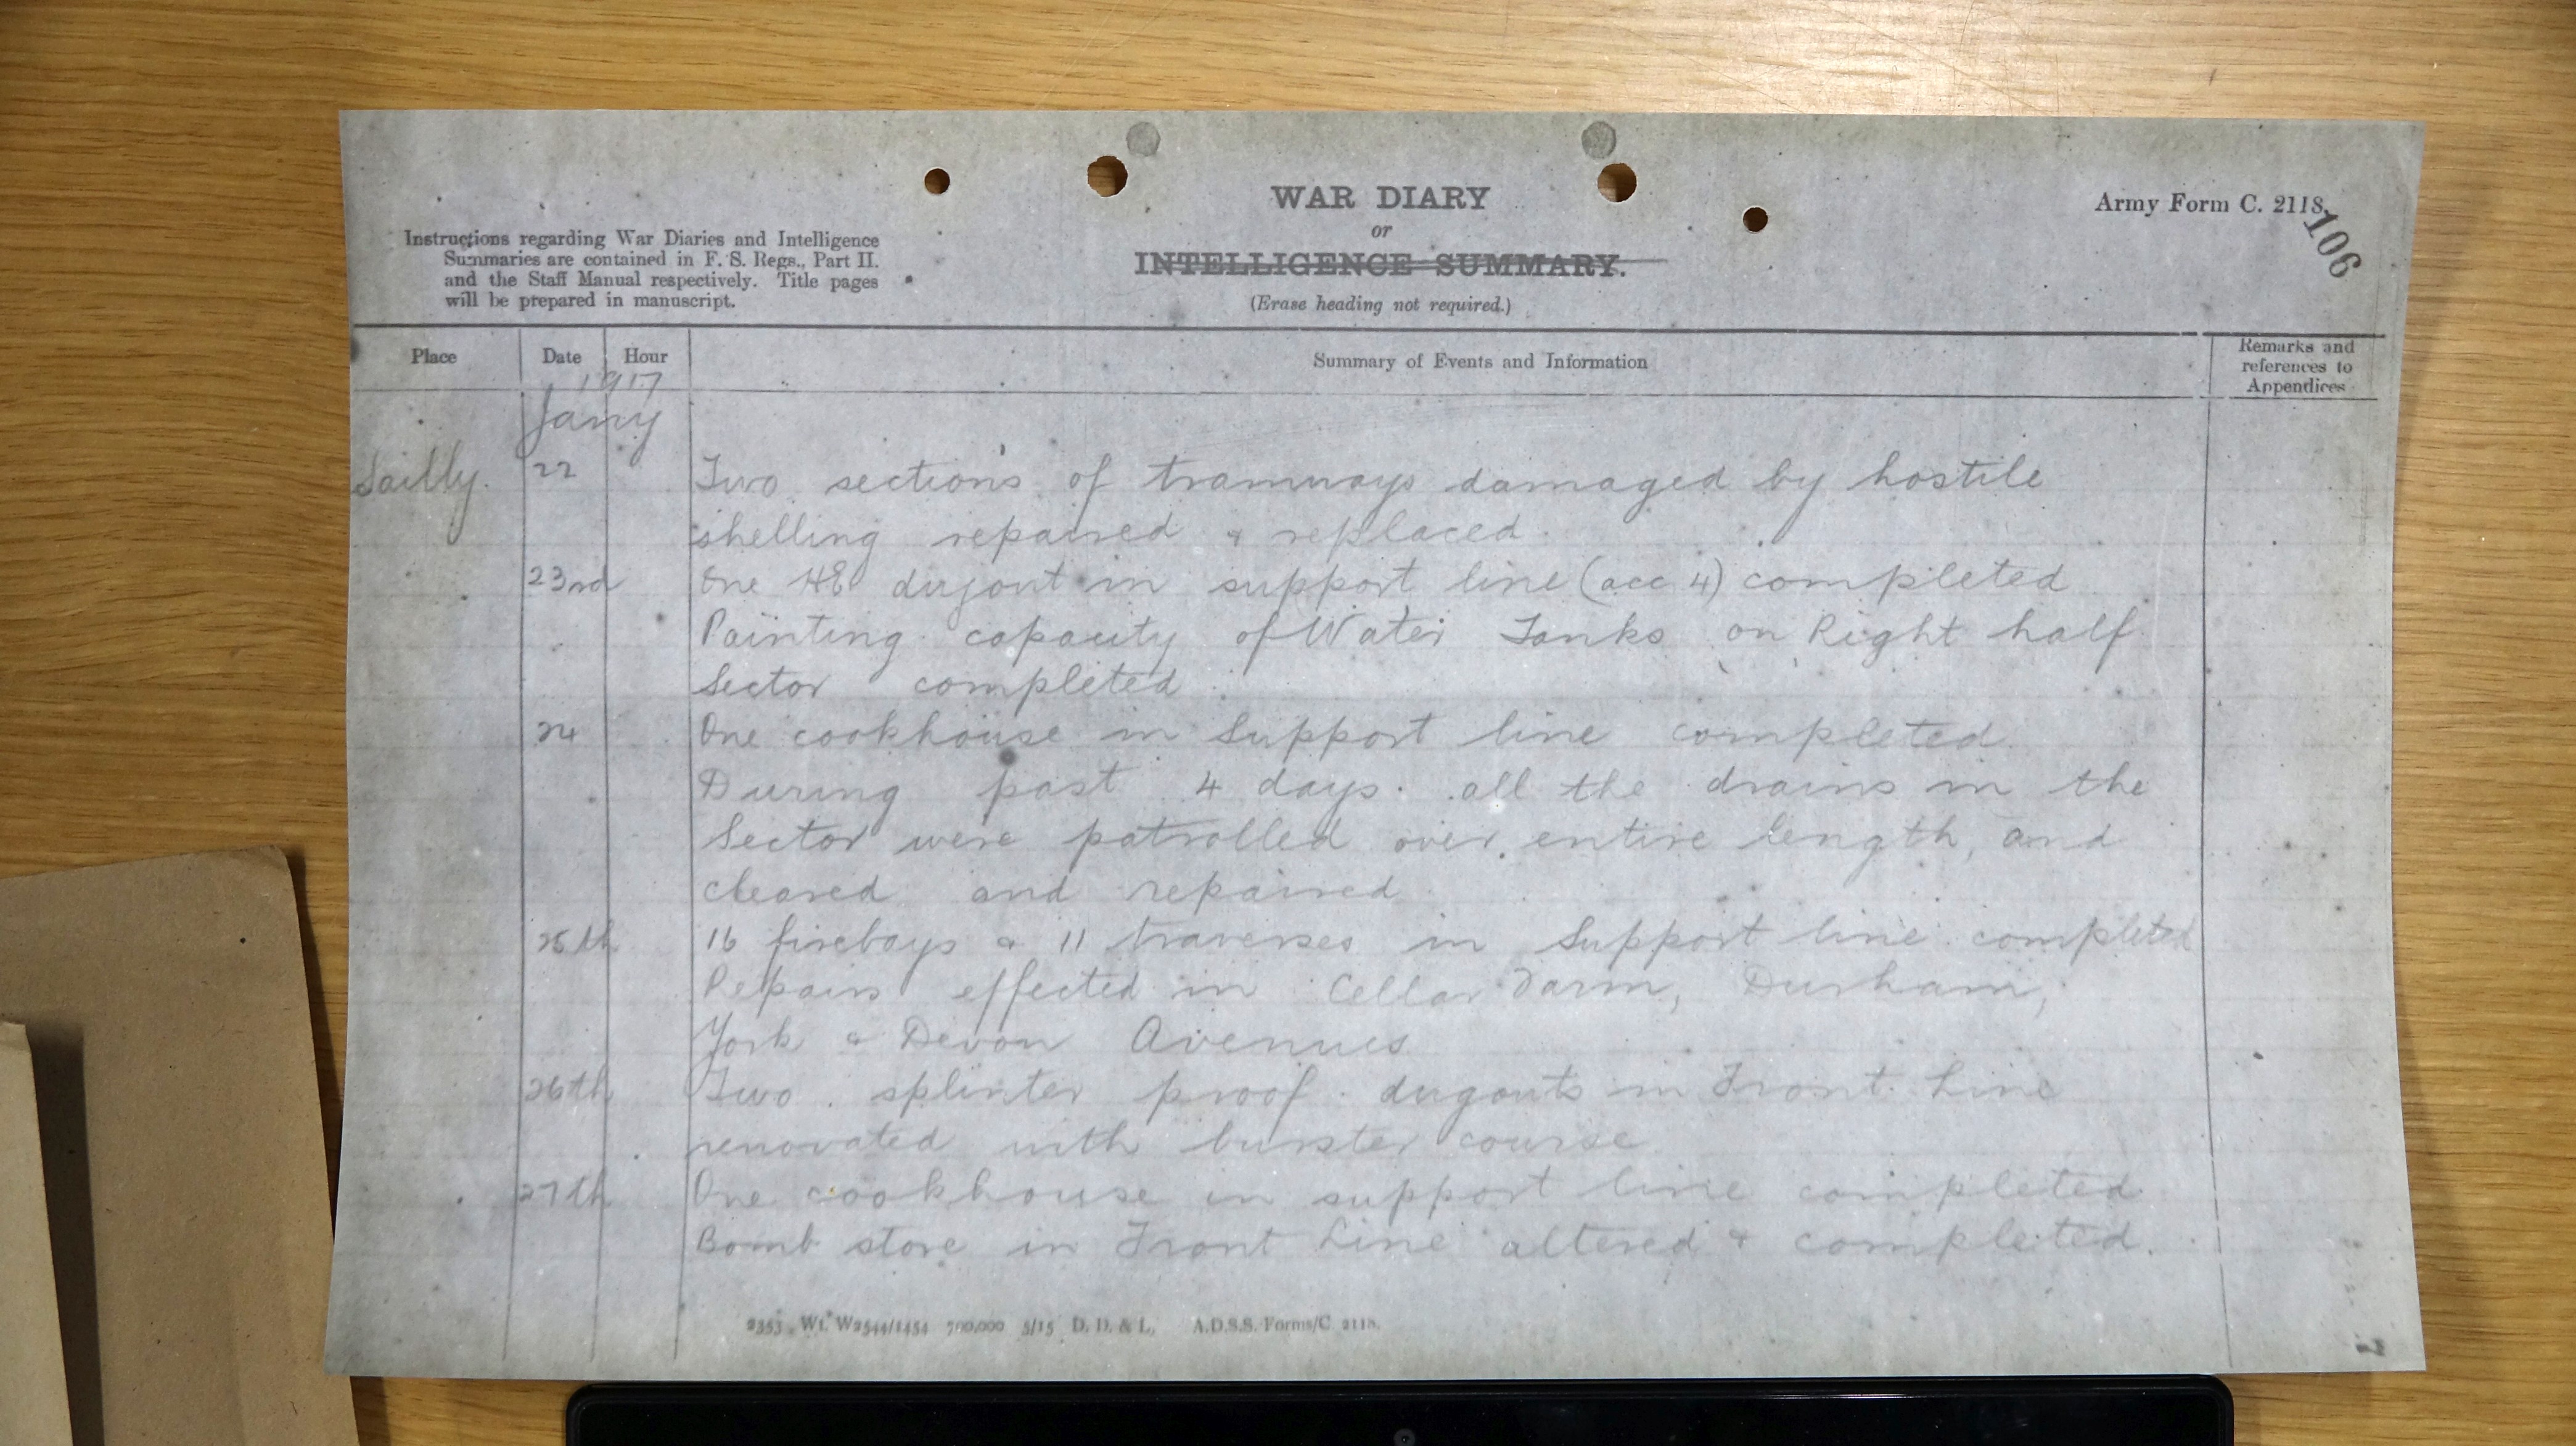 WAR DIARY
or
INTELLIGENCE SUMMARY.
(Erase heading not required.)
Army Form C. 2118.
106
Instructions regarding War Diaries and Intelligence
Summaries are contained in F. S. Regs., Part II.
and the Staff Manual respectively. Title pages
will be prepared in manuscript.
Place Date Hour Summary of Events and Information Remarks and references to Appendices
1917
Jany
Sailly. 22 Two sections of tramways damaged by hostile
shelling repaired & replaced.
23rd One HE dugout in support line (acc 4) completed
Painting capacity of Water Tanks on Right half
Sector completed
24 One cookhouse in Support line completed.
During past 4 days. all the drains in the
Sector were patrolled over entire length, and
cleared and repaired
25th 16 firebays & 11 traverses in Support line completed
Repairs effected in Cellar Farm, Durham,
York & Devon Avenues
26th Two splinter proof dugouts in Front Line
renovated with burster course
27th One cookhouse in support line completed
Bomb store in Front Line altered & completed.
2353 Wt. W2544/1454 700,000 5/15 D. D. & L. A.D.S.S. Forms/C. 2118.